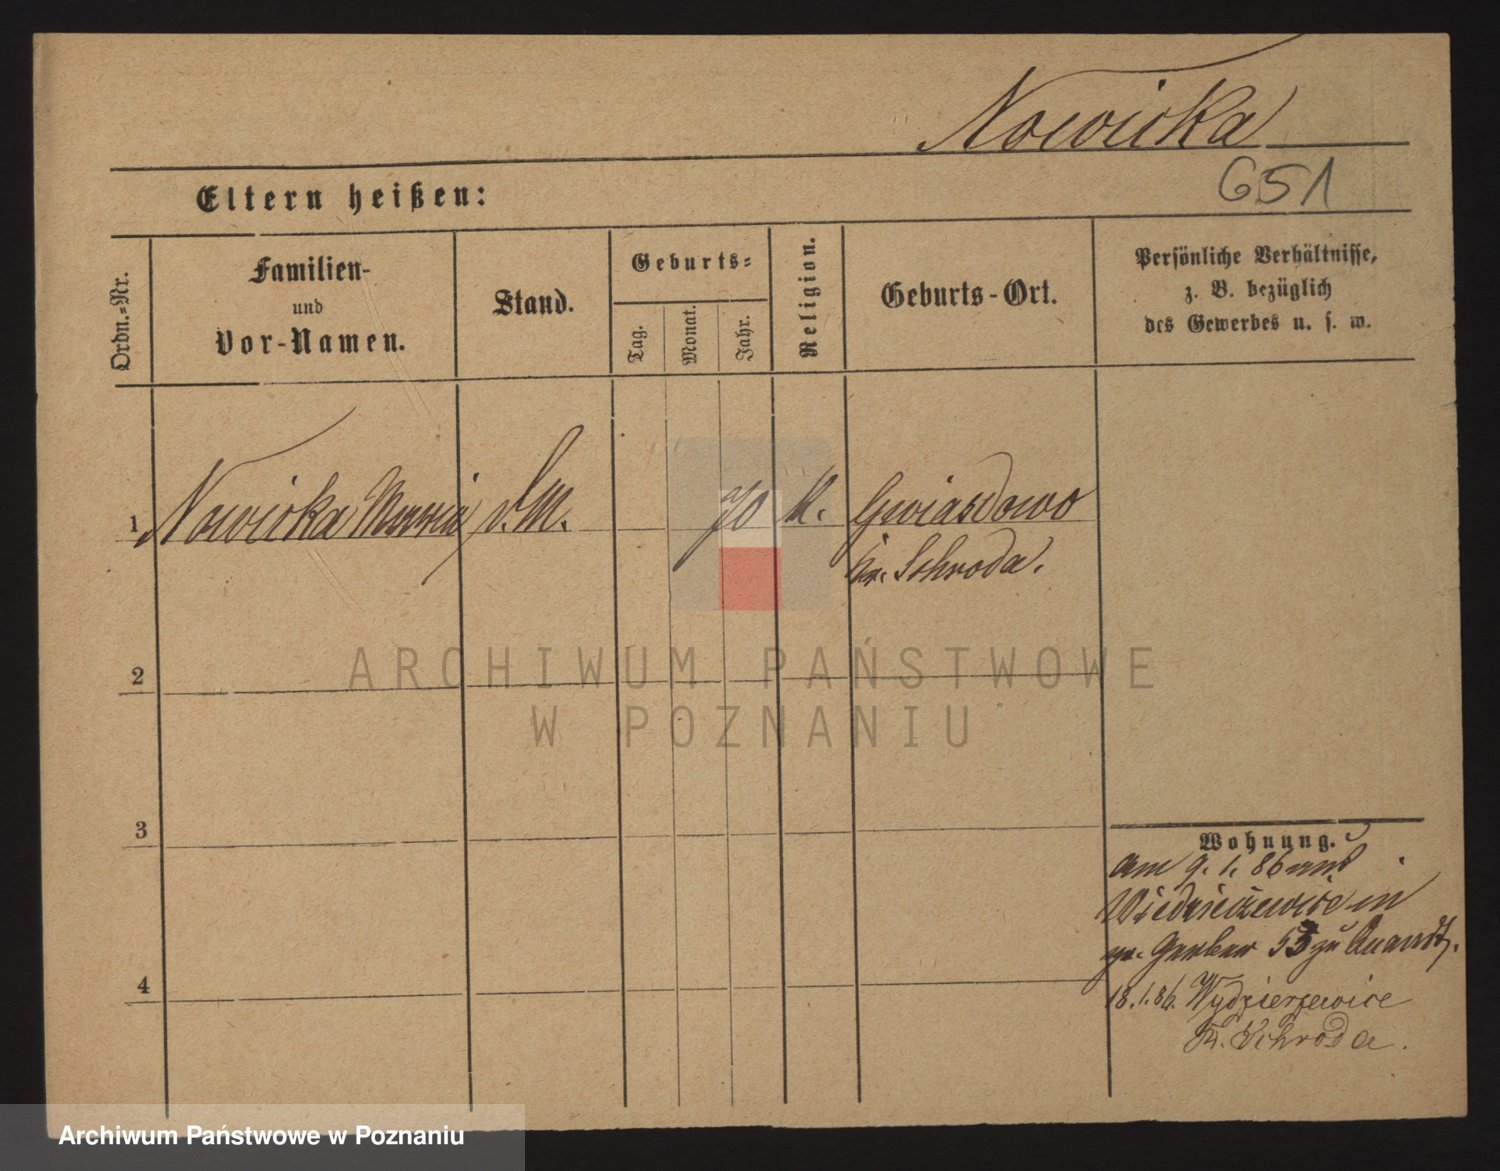 Nowicka
651
Eltern heißen:
Ordn.-Nr.
Familien-
und
Vor-Namen.
Stand.
Geburts-
Tag.
Monat.
Jahr.
Religion.
Geburts-Ort.
Persönliche Verhältnisse,
z. B. bezüglich
des Gewerbes u. s. w.
1 Nowicka Maria d. M. 70 k. Gwiasdowo
Kr. Schroda.
ARCHIWUM PAŃSTWOWE
W POZNANIU
2
3
4
Wohnung.
Am 9. 1. 86 aus
Wiedziezewice in
gr. Gerber 53 zu Quandt.
18.1.86. Wydzierzewice
Kr. Schroda.
Archiwum Państwowe w Poznaniu